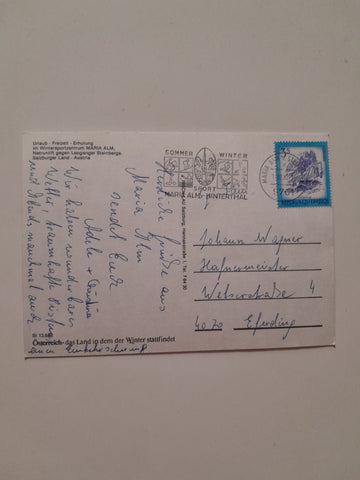 Urlaub - Freizeit - Erholung
im Wintersportzentrum MARIA ALM,
Natrunlift gegen Leoganger Steinberge
Salzburger Land - Austria
SOMMER WINTER
SPORT
MARIA ALM - HINTERTHAL
MARIA ALM
3S
REPUBLIK ÖSTERREICH
Herzliche Grüße aus
Maria Alm
sendet Euch
Adele + Christina
Wir haben wunderbares
Wetter, traumhafte Pisten
und Abends manchmal auch
einen Einkehrschwung
Johann Wagner
Hafnermeister
Welserstraße 4
4070 Eferding
Österreich - das Land in dem der Winter stattfindet